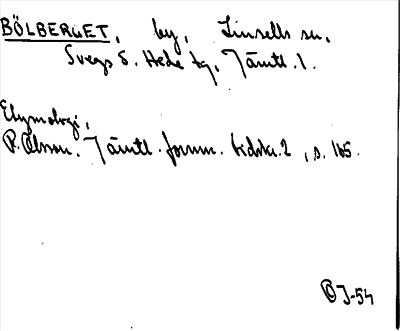 BÖLBERGET, by, Linsells sn,
Svegs s. Hede tg, Jämtl. l.
Etymologi,
P. Olsson. Jämtl. fornm. tidskr. 2, s. 165.
J-54